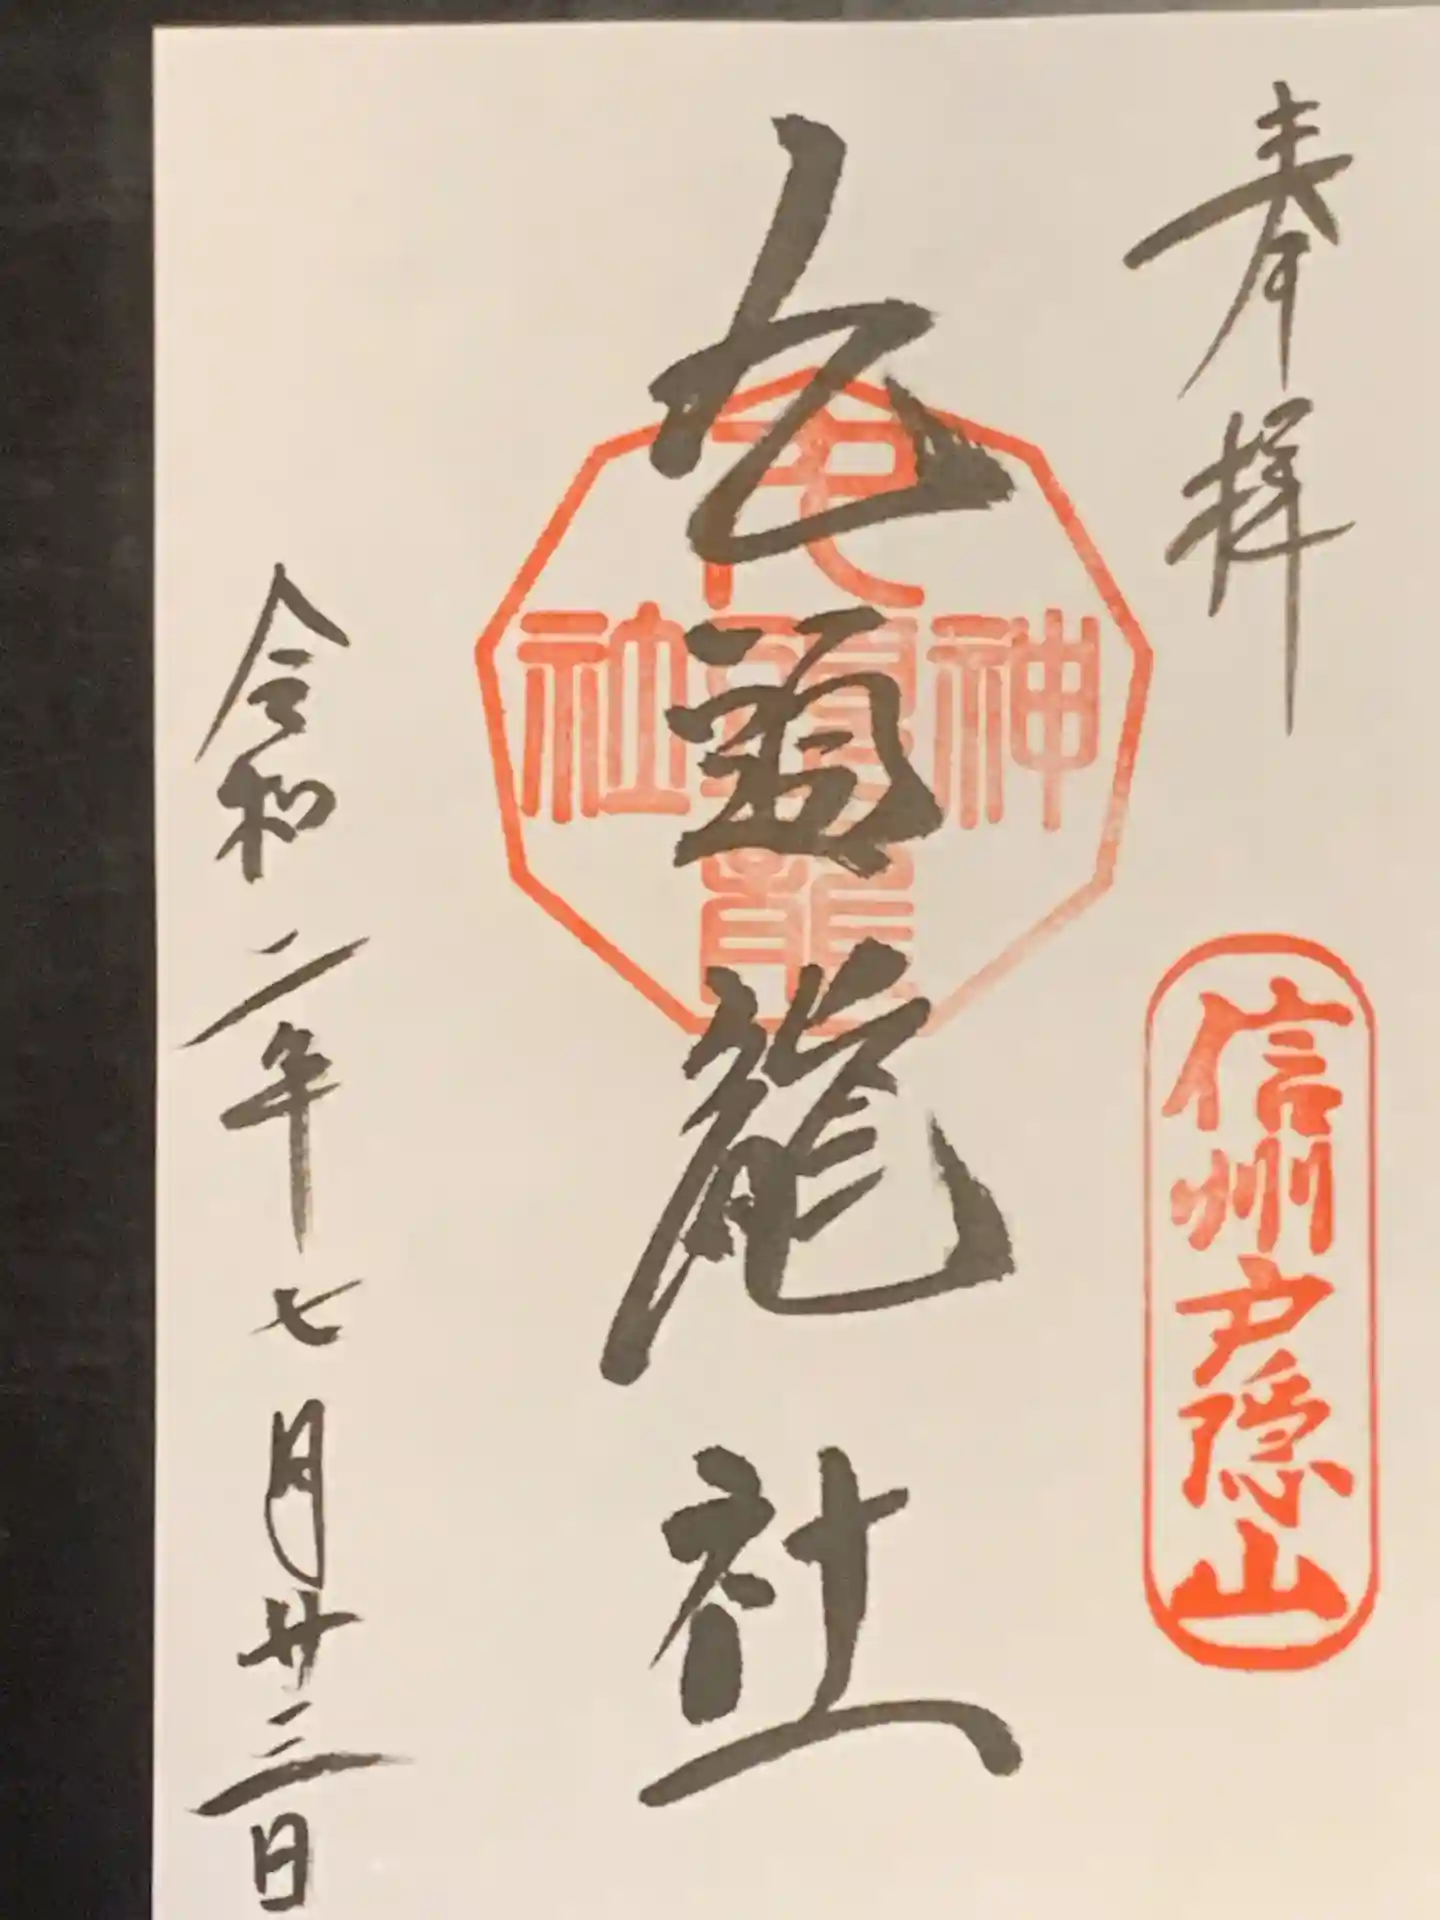 奉拝
信州戸隠山
九頭龍社
九頭龍
神社
令和二年七月廿三日